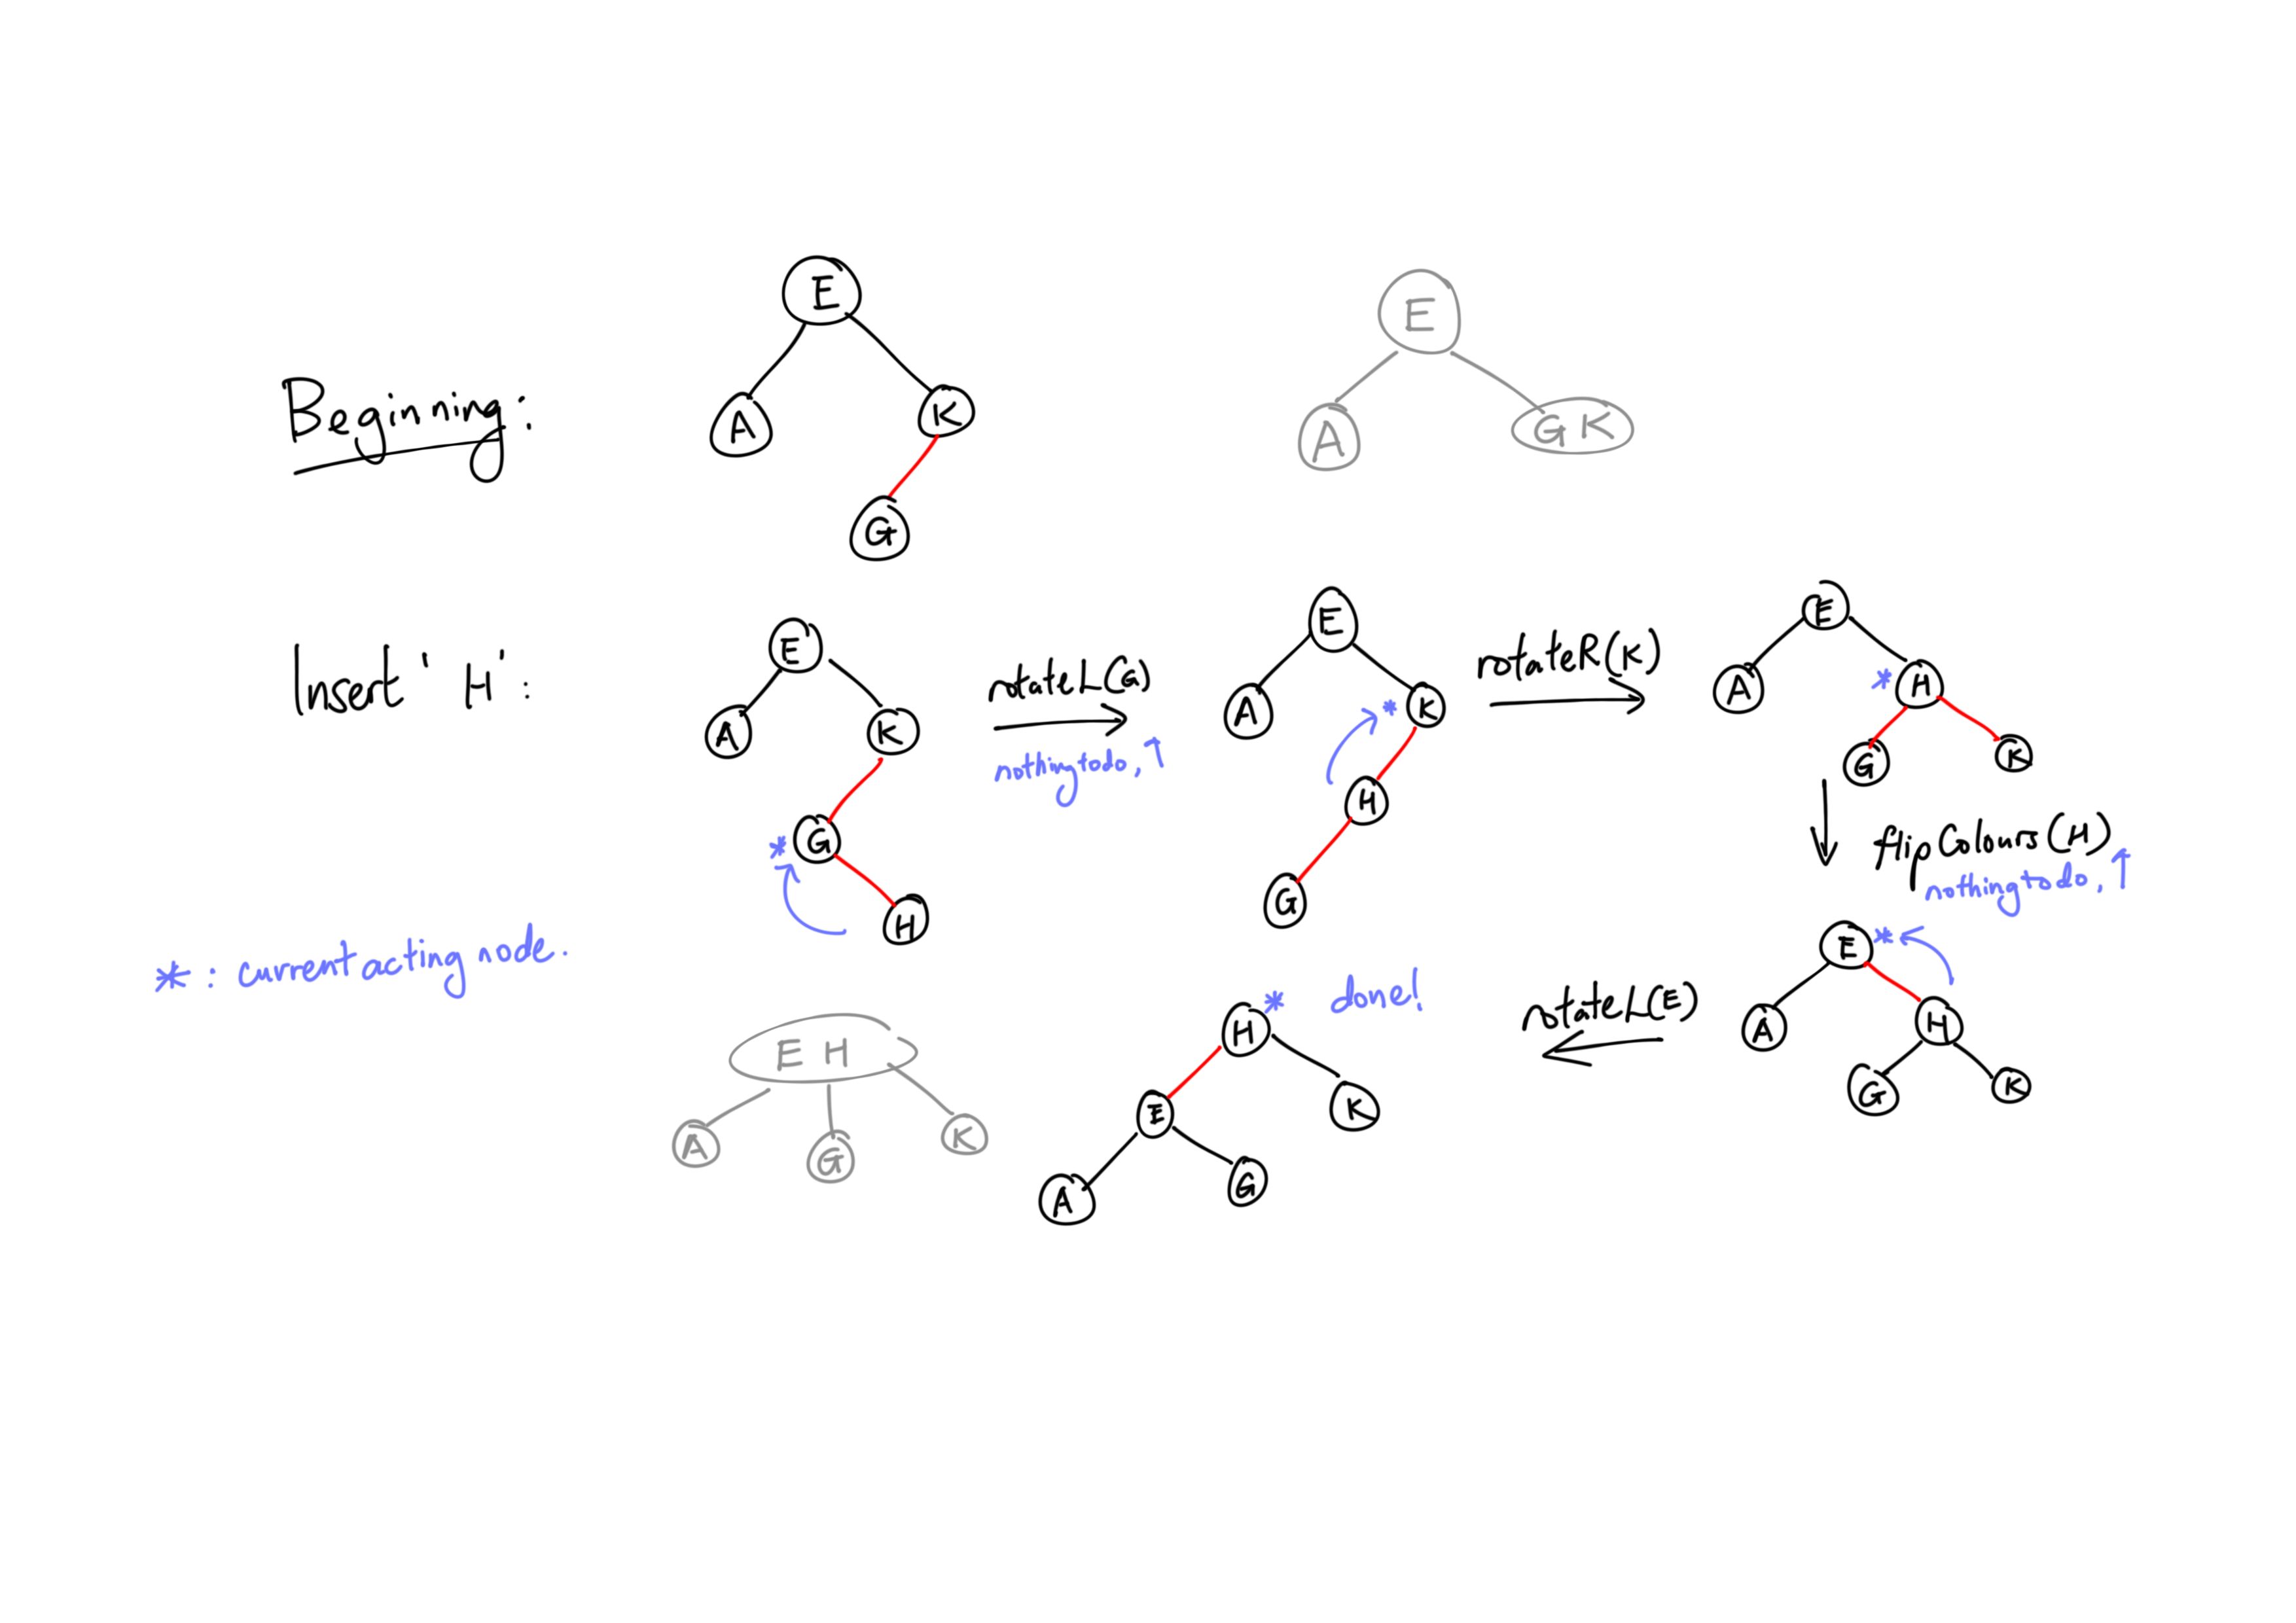 Beginning:
E
A
K
G
E
A
G K
Insert 'H':
E
A
K
* G
H
rotateL(G)
nothing to do, ↑
E
A
* K
H
G
rotateR(K)
E
A
* H
G
K
flipColours(H)
nothing to do, ↑
E *
A
H
G
K
rotateL(E)
H * done!
E
K
A
G
E H
A
G
K
* : current acting node.